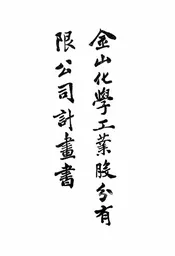 金山化學工業股份有
限公司計畫書